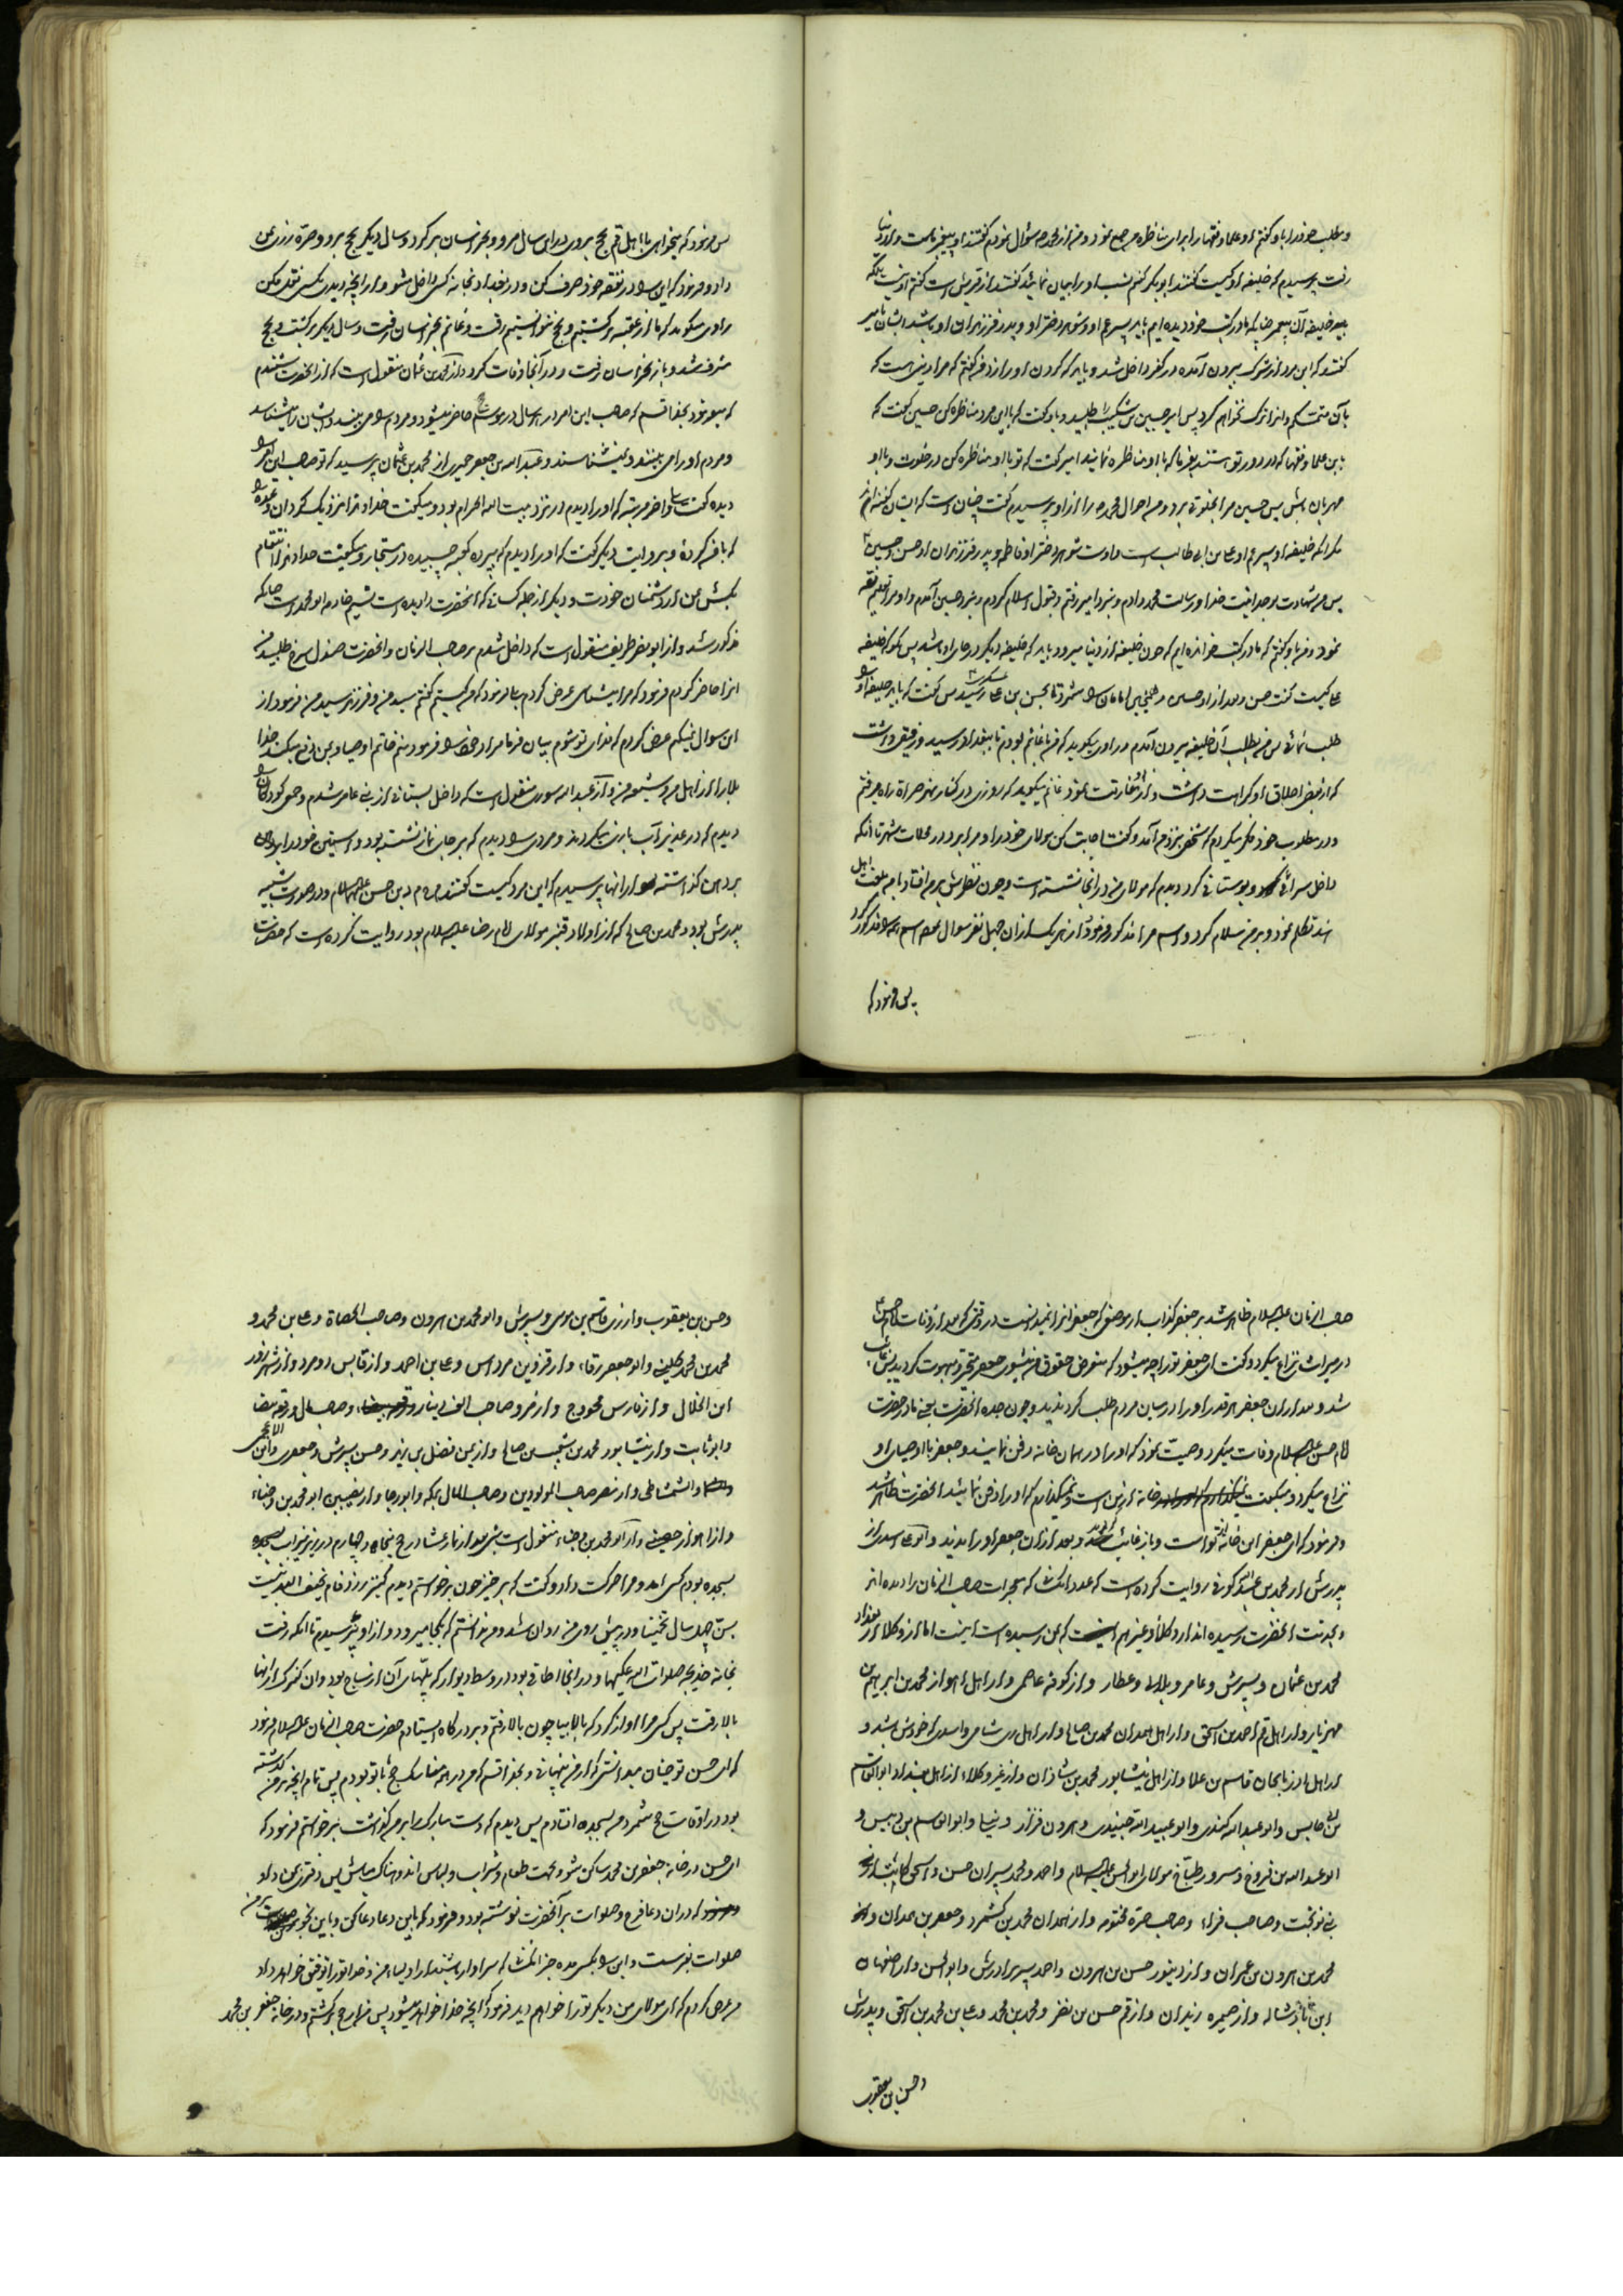 و مطلب خود را باو گفتم او علما و فقها را برای مناظره من جمع نمود و من از محمد ص سؤال نمودم گفتند او پیغمبر ماست و از دنیا
رفت پرسیدم که خلیفه او کیست گفتند ابو بکر گفتم نسب او را بیان نمائید گفتند از قریش است گفتم او نیست بلکه
خلیفه آن پیغمبر که ما در کتب خود دیده ایم باید پسر عم او و شوهر دختر او و پدر فرزندان او باشد ایشان بامیر
گفتند که این مرد از شرک بیرون آمده در کفر داخل شد و باید که گردن او را زد من گفتم که مرا دینی است که
بآن متمسکم و از آن ترک نخواهم کرد پس امیر حسین بن شکیب را طلبید و باو گفت که با این مرد مناظره کن حسین گفت که
این علما و فقها که در دور تو هستند بفرما که با او مناظره نمایند امیر گفت که تو با او مناظره کن در خلوت و با او
مهربان باش پس حسین مرا بخلوتی برد و من احوال محمد ص را از او پرسیدم گفت چنان است که ایشان گفته اند
مگر آنکه خلیفه او پسر عم او علی بن ابی طالب است و اوست شوهر دختر او فاطمه و پدر فرزندان او حسن و حسین
پس من شهادت بوحدانیت خدا و رسالت محمد دادم و نزد امیر رفتم و قبول اسلام کردم و نزد حسین آمدم و او مرا تعلیم فقه
نمود و من باو گفتم که ما در کتب خوانده ایم که چون خلیفه از دنیا میرود باید که خلیفه دیگر در جای او باشد پس بگو که خلیفه
علی کیست گفت حسن و بعد از او حسین و همچنین امامان را شمرد تا بحسن بن علی رسید پس گفت که باید خلیفه او را
طلب نمائی پس من بطلب آن خلیفه بیرون آمدم و راوی میگوید که من با غانم بودم تا ببغداد رسید و رفیقی داشت
که از بعض اخلاق او کراهت داشت و از او مفارقت نمود غانم میگوید که روزی در کنار نهر صراة راه میرفتم
و در مطلوب خود فکر میکردم که شخصی نزد من آمد و گفت اجابت کن مولای خود را و مرا برد در محلات شهر تا آنکه
داخل سرائی و بوستانی کرد دیدم که مولای من در آنجا نشسته است و چون نظرش بر من افتاد با من بلغت اهل
هند تکلم نمود و بر من سلام کرد و اسم مرا مذکور فرمود و از هر یک از آن چهل نفر سؤال بعضی اسم همه را مذکور کرد
پس فرمود که
پس فرمود که میخواهی با اهل قم بحج بروی در این سال مرو و بخراسان برگرد و سال دیگر بحج برو و صرّه زری بمن
داد و فرمود که این را در نفقه خود صرف کن و در بغداد بخانه کسی داخل مشو و از آنچه دیدی بکسی نقل مکن
راوی میگوید که ما از عقبه برگشتیم و حج نتوانستیم رفت و غانم بخراسان رفت و سال دیگر برگشت و بحج
مشرف شد و باز بخراسان رفت و در آنجا وفات کرد و از محمد بن عثمان منقول است که از آنحضرت شنیدم
که میفرمود بخدا قسم که صاحب این امر در هر سال در موسم حاضر میشود و مردم را می بیند و ایشان را میشناسد
و مردم او را می بینند و نمیشناسند و عبد الله بن جعفر حمیری از محمد بن عثمان پرسید که تو صاحب این امر را
دیده گفت بلی و آخر مرتبه که او را دیدم در نزد بیت الله الحرام بود و میگفت خداوندا نزدیک گردان وعده را
که با من کردۀ و بروایت دیگر گفت که او را دیدم که بپرده کعبه چسبیده در مستجار و میگفت خداوندا انتقام
بکش من از دشمنان خودت و دیگر از جمله کسانی که آنحضرت را دیده است نسیم خادمه ابو محمد است چنانکه
مذکور شد و از ابو نصر طریف منقول است که داخل شدم بر صاحب الزمان و آنحضرت صندل سرخ طلبید من
آن را حاضر کردم فرمود که مرا میشناسی عرض کردم بلی فرمود که من کیستم گفتم سید من و فرزند سید من فرمود از
این سؤال نمیکنم عرض کردم که فدای تو شوم بیان فرما مراد خود را فرمود منم خاتم اوصیا و بمن دفع میکند خدا
بلا را از اهل من و شیعه من و از عبد الله سوری منقول است که داخل بستانی از بنی عامر شدم و جمعی کودکان را
دیدم که در غدیر آب بازی میکردند و مردی را دیدم که بر جای نماز نشسته بود و آستین خود را بر دهن
بر دهن گذاشته از آنها پرسیدم که این مرد کیست گفتند م ح م د بن حسن علیهما السلام و در صورت شبیه
پدرش بود و محمد بن صالح که از اولاد قنبر مولای امام رضا علیه السلام بود روایت کرده است که حضرت
صاحب الزمان علیه السلام ظاهر شد بر جعفر کذاب از موضعی که جعفر آن را نمیدانست در وقتی که بعد از وفات امام حسن
در میراث نزاع میکرد و گفت ای جعفر تو را چه میشود که متعرض حقوق من میشوی جعفر متحیر و مبهوت گردید پس غائب
شد و بعد از آن جعفر هر قدر او را در میان مردم طلب کرد ندید و چون جده آنحضرت یعنی مادر حضرت
امام حسن علیه السلام وفات میکرد وصیت نمود که او را در همان خانه دفن نمایند و جعفر با اوصیای او
نزاع میکرد و میگفت خانه از من است و نمیگذارم که او را دفن نمائید آنحضرت ظاهر شد
و فرمود که ای جعفر این خانه از تو است و باز غائب گردید و بعد از آن جعفر او را ندید و ابو علی اسدی از
پدرش از محمد بن عبد الله کوفی روایت کرده است که عدد آن کسانی که معجزات صاحب الزمان را دیده اند
و بخدمت آنحضرت رسیده اند از وکلا و غیرهم که بمن رسیده است اینست اما از وکلا از بغداد
محمد بن عثمان و پسرش و عامر و بلالی و عطار و از کوفه عاصمی و از اهل اهواز محمد بن ابراهیم بن
مهزیار و از اهل قم احمد بن اسحق و از اهل همدان محمد بن صالح و از اهل ری شامی و اسدی که خودش باشد و
از اهل آذربایجان قاسم بن علا و از اهل نیشابور محمد بن شاذان و از غیر وکلاء از اهل بغداد ابو القاسم
بن ابی حابس و ابو عبد الله کندی و ابو عبید الله جنیدی و هرون قزاز و نیلی و ابو القاسم بن دبیس و
ابو عبد الله بن فروخ و مسرور طبّاخ مولای ابو الحسن علیه السلام و احمد و محمد پسران حسن و اسحق کاتب از
بنی نوبخت و صاحب فراء و صاحب صرّه مختومه و از همدان محمد بن کشمرد و جعفر بن حمدان و
محمد بن هرون بن عمران و از دینور حسن بن هرون و احمد پسر برادرش و ابو الحسن و از اصفهان
ابن باذشاله و از صیمره زیدان و از قم حسن بن نضر و محمد بن محمد و علی بن محمد بن اسحق و پدرش
و حسن بن یعقوب
و حسن بن یعقوب و از ری قاسم بن موسی و پسرش و ابو محمد بن هرون و صاحب الحصاة و علی بن محمد و
محمد بن محمد کلینی و ابو جعفر رفاء و از قزوین مرداس و علی بن احمد و از قابس دو مرد و از شهر زور
ابن الخال و از فارس محووج و از مرو صاحب الف دینار و صاحب مال و رقعه بیضا
و ابو ثابت و از نیشابور محمد بن شعیب بن صالح و از یمن فضل بن یزید و حسن پسرش و جعفری و ابن الاعجمی
و الشمشاطی و از مصر صاحب المولودین و صاحب المال بمکه و ابو رجا و از نصیبین ابو محمد بن وجناء
و از اهواز حصینی و از ابو محمد بن وجناء منقول است که شبی بعد از نماز عشا در حج پنجاه و چهارم در زیر میزاب بسجده
بسجده بودم کسی آمد و مرا حرکت داد و گفت که برخیز چون برخاستم دیدم کنیز زرد فام نحیف البدنیست
بسنّ چهل سال تخمینا و در پیش روی من روان شد و من ندانستم که بکجا میرود و از او نپرسیدم تا آنکه رفت
بخانه خدیجه صلوات الله علیها و در آنجا اطاقی بود در وسط دیوار که پله های آن از ساج بود و آن کنیزک از آنها
بالا رفت پس کسی مرا آواز کرد که بالا بیا چون بالا رفتم و بر درگاه ایستادم حضرت صاحب الزمان علیه السلام فرمود
که ای حسن تو چنان میدانستی که از من پنهانی و بخدا قسم که من در همه مناسک حج با تو بودم پس تمام آنچه بر من گذشته
بود در اوقات حج شمرد من بسجده افتادم پس دیدم که دست مبارک را بر من گذاشت برخاستم فرمود که
ای حسن در خانه جعفر بن محمد ساکن شو و بجهت طعام و شراب و لباس اندوهناک مباش پس دفتری بمن داد
که در آن دعا فرج و صلوات بر آنحضرت نوشته بود و فرمود که باین دعا دعا کن و باین نحو بر من
صلوات بفرست و این را بکسی مده جز آنکسانی که سزاوار باشند از اولیاء من و خدا تو را توفیق خواهد داد
من عرض کردم که ای مولای من دیگر تو را خواهم دید فرمود که آنچه خدا خواهد میشود پس من از حج برگشتم و در خانه جعفر بن محمد